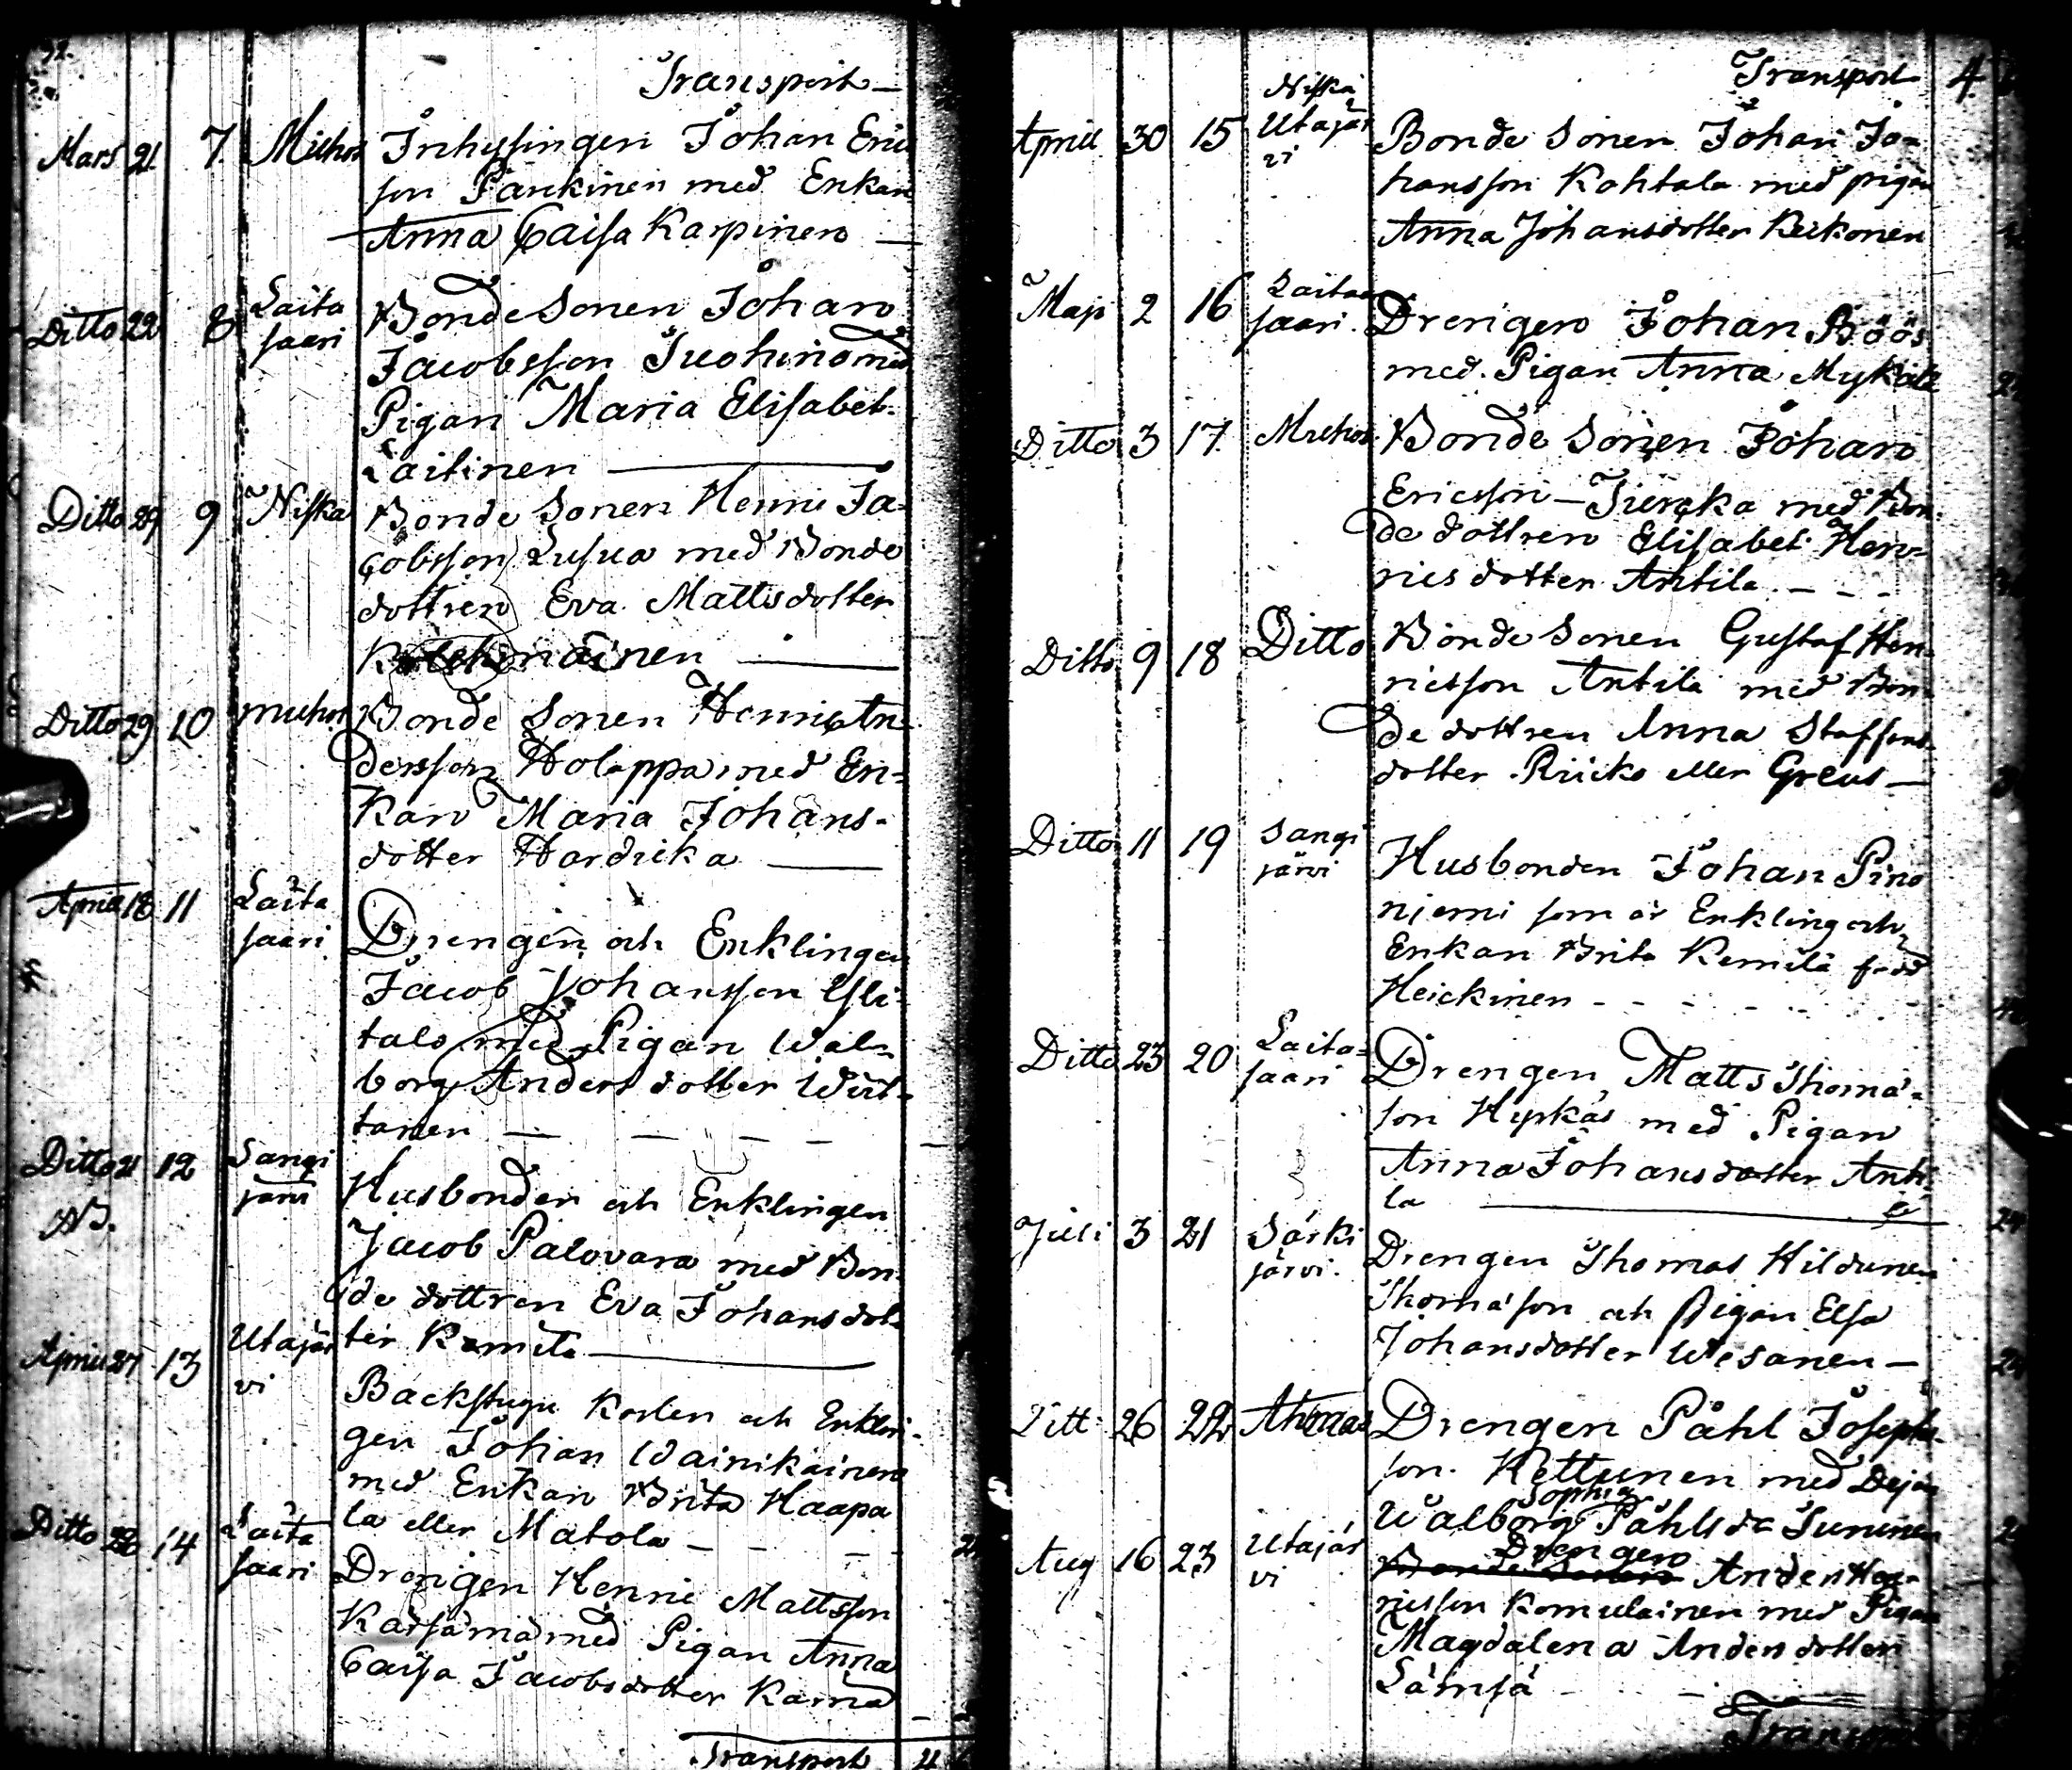 Transport
Mars 21 7. Muhos Inhysingen Johan Eric
son Parkinen med Enkan
Anna Caisa Karpinen
Ditto 22 8 Laita
saari Bonde Sonen Johan
Jacobsson Juohino med
Pigan Maria Elisabet
Laitinen
Ditto 29 9 Niska Bonde Sonen Henric Ja-
cobsson Lusua med Bonde
dottren Eva Mattsdotter
Ditto 29 10 muhos Bonde Sonen Henric An
dersson Holappa med En-
kan Maria Johans-
dotter Hardicka
April 18 11 Laita
saari Drengen och Enklingen
Jacob Johansson Yli-
talo med Pigan Wal-
borg Anders dotter Wirt-
tanen
Ditto 21 12 Sangi
järvi Husbonden och Enklingen
NB.
Jacob Palovara med Bon-
de dottren Eva Johansdot-
ter Kemila
April 27 13 Utajär
vi Backstugu Karlen och Enklin-
gen Johan Wainikainen
med Enkan Brita Haapa
la eller Matola
Ditto 28 14 Laita
saari Drengen Henric Mattsson
Karsämä med Pigan Anna
Caisa Jacobsdotter Kama
Transport 4
Transport 4
April 30 15 Niska
Utajär
vi Bonde Sonen Johan Jo-
hansson Kohtala med pigan
Anna Johansdotter Keikonen
Maji 2 16 Laita
saari. Drengen Johan Böös
med Pigan Anna Mykälä
Ditto 3 17 Muhos. Bonde Sonen Johan
Ericsson Tiercka med Bon-
de dottren Elisabet Hen-
rics dotter Antila
Ditto 9 18 Ditto Bonde Sonen Gustaf Hen-
ricsson Antila med Bon-
de dottren Anna Staffans
dotter Riicko eller Greus
Ditto 11 19 Sangi
järvi Husbonden Johan Pino
njemi som är Enkling och
Enkan Brita Kemilä född
Heickinen
Ditto 23 20 Laita-
saari Drengen Matts Thoma-
son Hypkäs med Pigan
Anna Johansdotter Anti
la
Juli 3 21 Särki
järvi. Drengen Thomas Hildunen
Thomason och Pigan Elsa
Johansdotter Wesanen
Ditt 26 22 Ahmas Drengen Påhl Josephs-
son. Kettunen med Dejan
Sophia
Walborg Påhlsdr Junnnen
Aug 16 23 Utajär
vi Drengen
Anders Hen-
ricsson Komulainen med Pigan
Magdalena Anders dotter
Lämsä
Transport